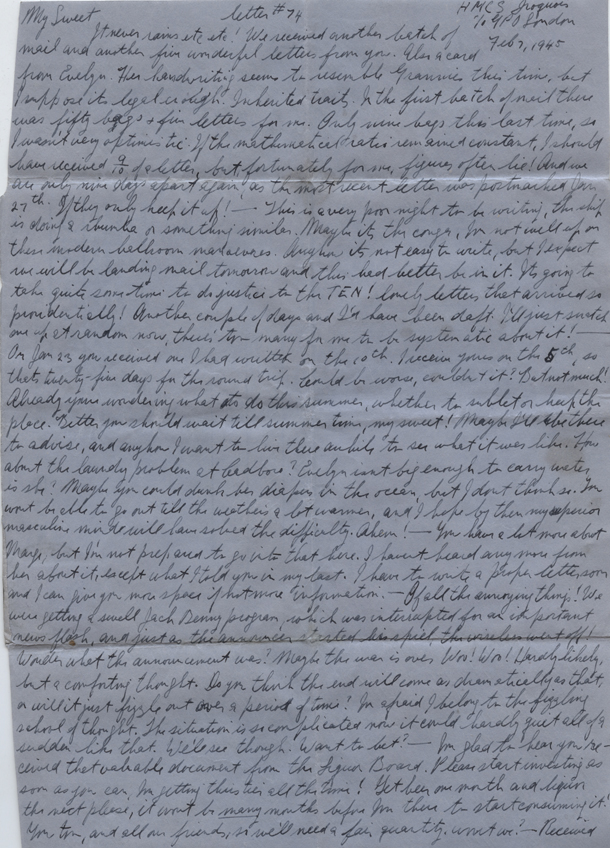 My Sweet letter #74 HMCS Iroquois
c/o GPO London
Feb 7, 1945
It never rains etc etc! We received another batch of
mail and another five wonderful letters from you. Also a card
from Evelyn. Her handwriting seems to resemble Grannie's this time, but
I suppose its legal enough. Inherited traits. In the first batch of mail there
was fifty bags & five letters for me. Only nine bags this last time, so
I wasn't very optimistic. If the mathematical ratio remained constant, I should
have received 9/10 of a letter, but fortunately for me, figures often lie! And we
are only nine days apart again, as the most recent letter was postmarked Jan
27th. If they only keep it up! — This is a very poor night to be writing, the ship
is doing a rhumba or something similar. Maybe its the conga, I'm not well up on
these modern ballroom manoeuvres. Anyhow its not easy to write, but I expect
we will be landing mail tomorrow and this had better be in it. Its going to
take quite some time to do justice to the TEN! lovely letters that arrived so
providentially! Another couple of days and I'd have been daft. I'll just snatch
one up at random now, there's too many for me to be systematic about it! —
On Jan 23 you received one I had written on the 10th. I receive yours on the 5th, so
thats twenty-five days for the round trip. Could be worse, couldn't it? But not much!
Already you're wondering what to do this summer, whether to sublet or keep the
place. Better you should wait till summer time, my sweet! Maybe I'll be there
to advise, and anyhow I want to live there awhile to see what it was like. How
about the laundry problem at? Evelyn isnt big enough to carry water
is she? Maybe you could dunk her diapers in the ocean, but I dont think so. You
wont be able to go out till the weather is a lot warmer, and I hope by then my superior
masculine mind will have solved the difficulty. Ahem! — You have a lot more about
Marge, but I'm not prepared to go into that here. I haven't heard any more from
her about it, except what I told you in my last. I have to write a proper letter soon
and I can give you more space if not more information. — Of all the annoying things! We
were getting a swell Jack Benny program, which was interrupted for an important
news flash, and just as the announcer started his spiel, the wireless went off!
Wonder what the announcement was? Maybe the war is over. Woo! Woo! Hardly likely,
but a comforting thought. Do you think the end will come as dramatically as that,
or will it just fizzle out over a period of time? I'm afraid I belong to the fizzling
school of thought. The situation is so complicated now it could hardly quit all of a
sudden like that. We'll see though. Want to bet? — I'm glad to hear you re-
ceived that valuable document from the Liquor Board. Please start investing as
soon as you can, I'm getting thirstier all the time! Get beer one month and liquor
the next please, it wont be many months before I'm there to start consuming it!
You too, and all our friends, so we'll need a fair quantity, wont we? — Received